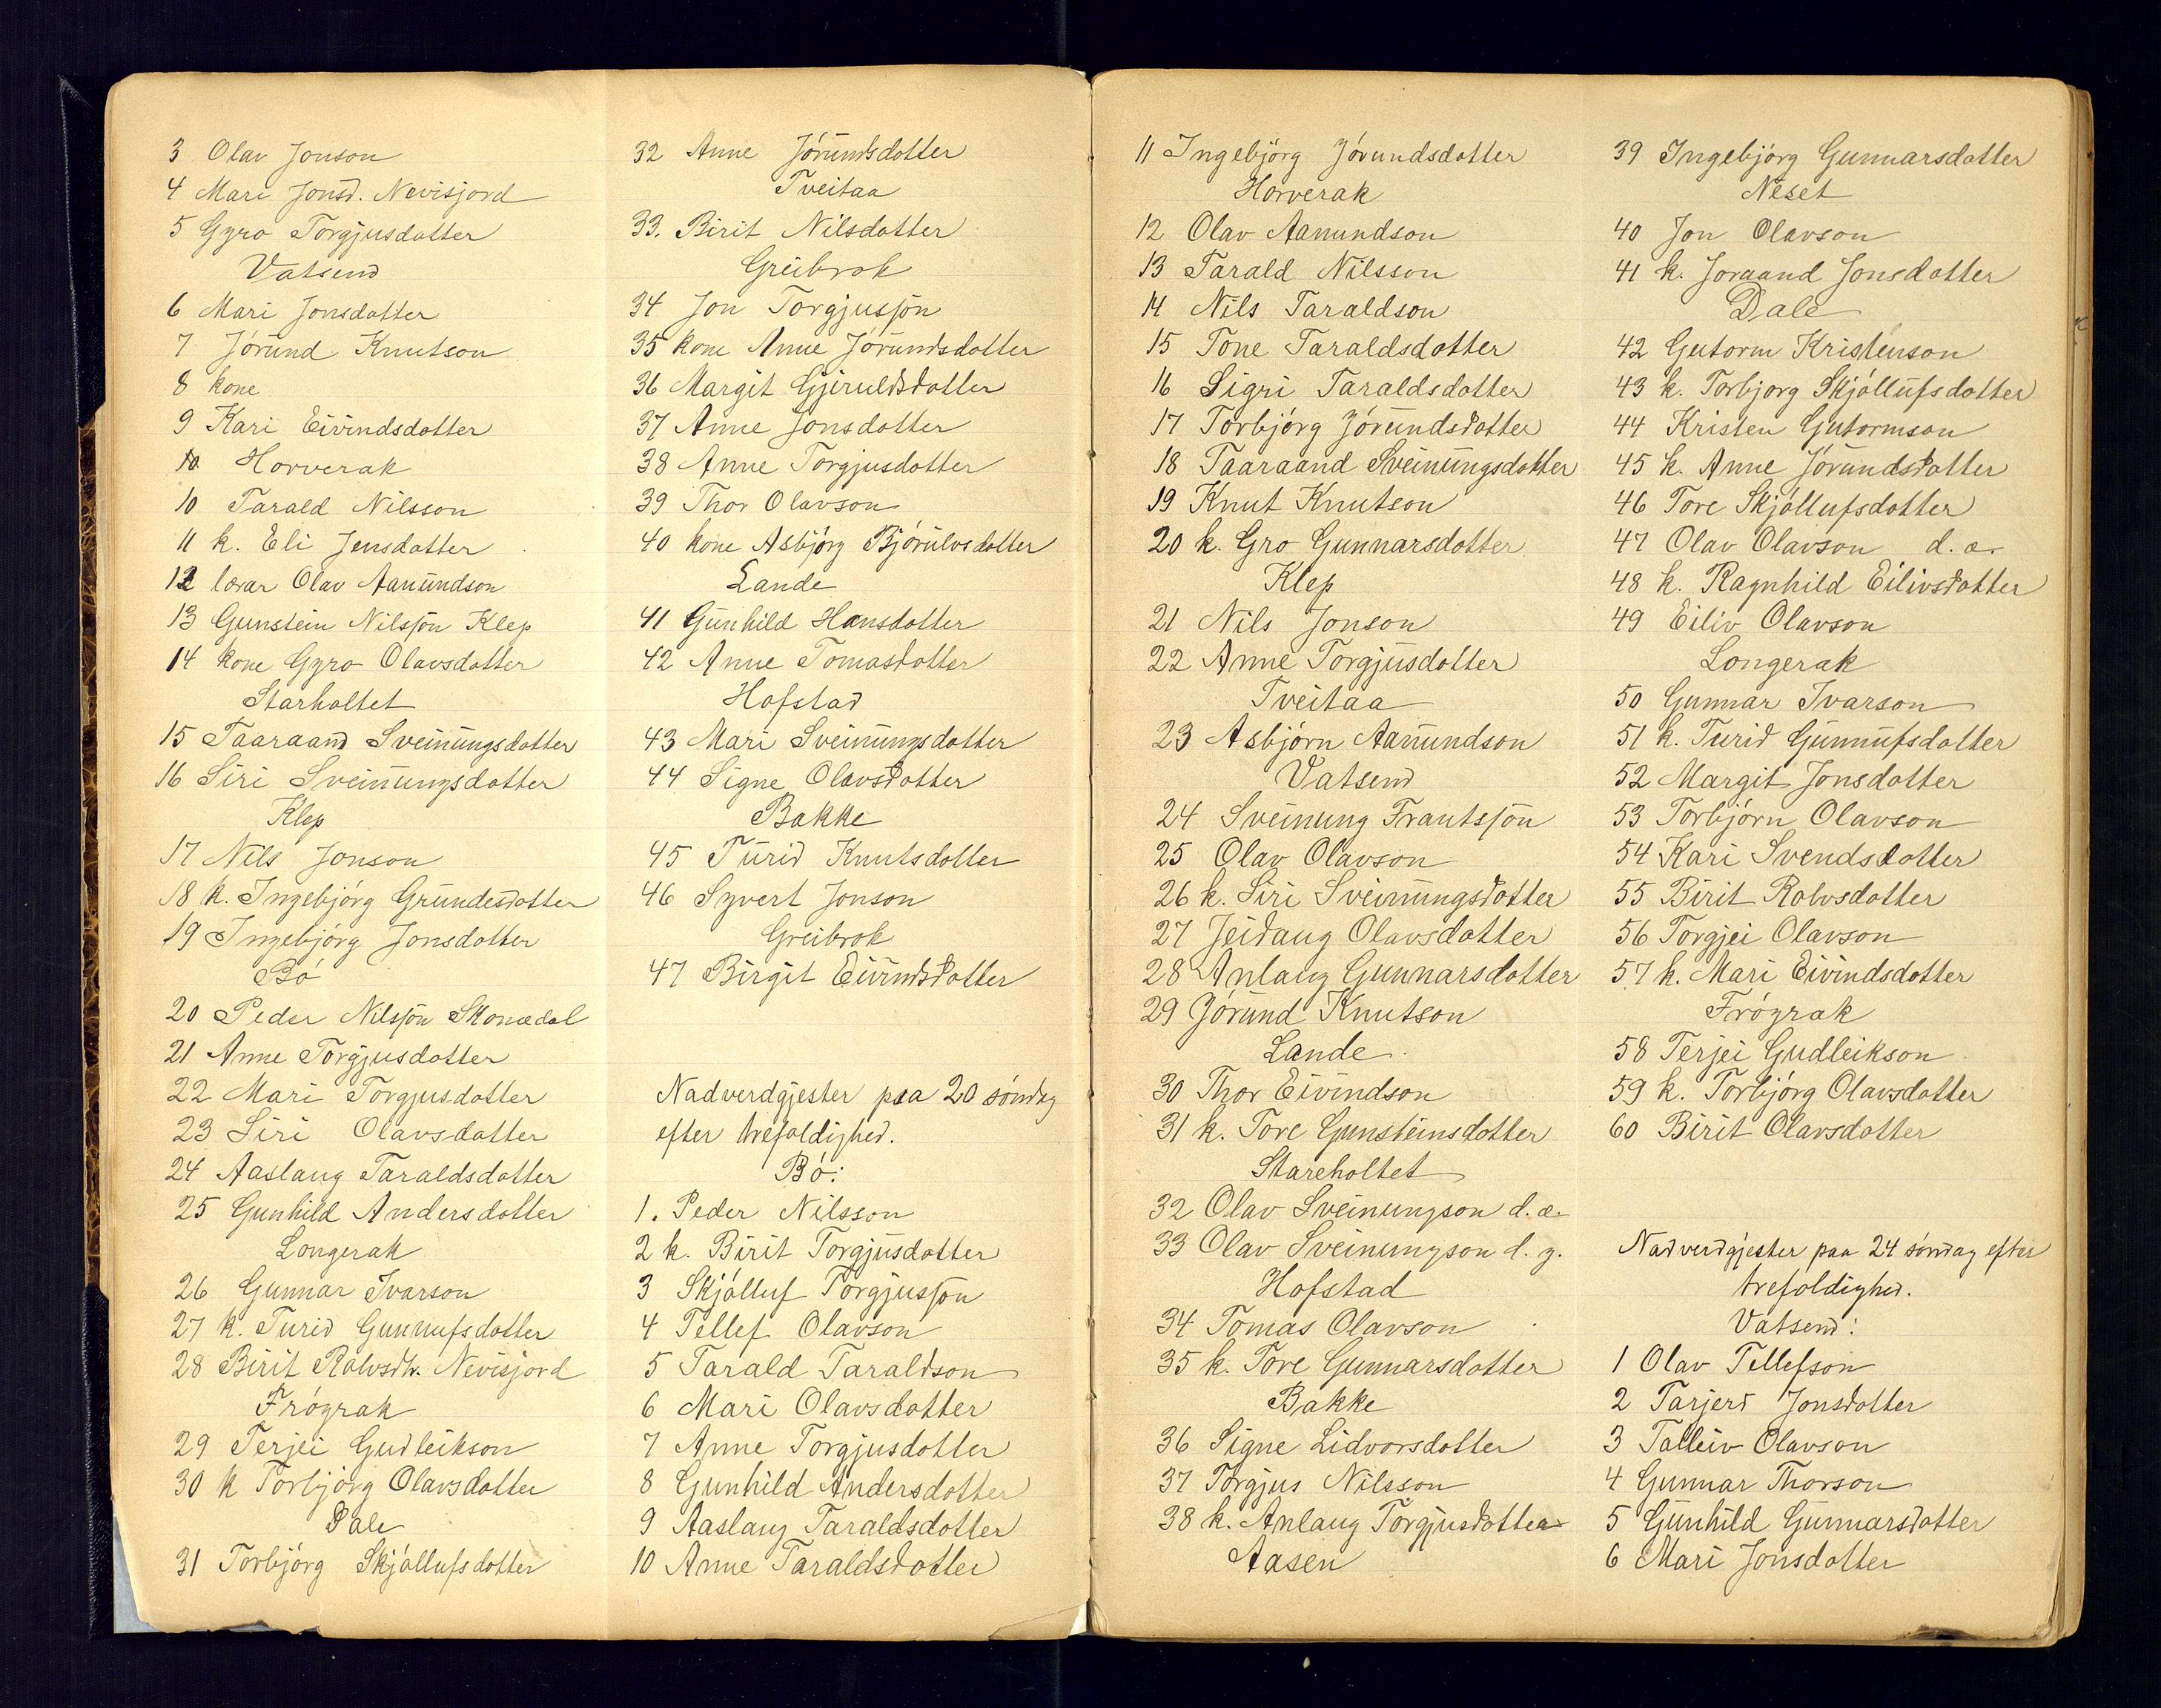 3 Olav Jonson
4 Mari Jonsd. Nevisjord
5 Gyro Torgjusdotter
Vatsend
6 Mari Jonsdotter
7 Jórund Knutson
8 kone
9 Kari Eivindsdotter
10 Horverak
10 Tarald Nilsson
11 k. Eli Jensdatter
12 lærar Olav Aanundson
13 Gunstein Nilsson Klep
14 kone Gyro Olavsdatter
Starholtet
15 Taaraand Sveinungsdotter
16 Siri Sveinungsdotter
Klep
17 Nils Jonson
18 k. Ingebjórg Grundesdotter
19 Ingebjórg Jonsdotter
Bó
20 Peder Nilsson Skomedal
21 Anne Torgjusdotter
22 Mari Torgjusdotter
23 Siri Olavsdotter
24 Aaslaug Taraldsdotter
25 Gunhild Andersdotter
Longerak
26 Gunnar Ivarson
27 k. Turid Gunnufsdotter
28 Birit Rolvsdtr. Nevisjord
Frógrak
29 Terjei Gudleikson
30 k Torbjórg Olavsdotter
Dale
31 Torbjórg Skjóllufsdotter
32 Anne Jórundsdotter
Tveitaa
33. Birit Nilsdotter
Greibrok
34 Jon Torgjusson
35 kone Anne Jórundsdotter
36 Margit Gjiruldsdotter
37 Anne Jonsdotter
38 Anne Torgjusdotter
39 Thor Olavson
40 kone Asbjórg Bjórulvsdotter
Lande
41 Gunhild Hansdotter
42 Anne Tomasdotter
Hofstad
43 Mari Sveinungsdotter
44 Signe Olavsdotter
Bakke
45 Turid Knutsdotter
46 Syvert Jonson
Greibrok
47 Birgit Eivindsdotter
Nadverdgjester paa 20 sóndag
efter trefoldighed.
Bó:
1. Peder Nilsson
2 k. Birit Torgjusdotter
3 Skjólluf Torgjusson
4 Tellef Olavson
5 Tarald Taraldson
6 Mari Olavsdotter
7 Anne Torgjusdotter
8 Gunhild Andersdotter
9 Aaslaug Taraldsdotter
10 Anne Taraldsdotter
11 Ingebjórg Jórundsdotter
Horverak
12 Olav Aanundson
13 Tarald Nilsson
14 Nils Taraldson
15 Tone Taraldsdotter
16 Sigri Taraldsdotter
17 Torbjórg Jórundsdotter
18 Taaraand Sveinungsdotter
19 Knut Knutson
20 k. Gro Gunnarsdotter
Klep
21 Nils Jonson
22 Anne Torgjusdotter
Tveitaa
23 Asbjórn Aanundson
Vatsend
24 Sveinung Frantsson
25 Olav Olavson
26 k. Siri Sveinungsdotter
27 Jeidaug Olavsdotter
28 Anlaug Gunnarsdotter
29 Jórund Knutson
Lande
30 Thor Eivindson
31 k. Tore Gunsteinsdotter
Stareholtet
32 Olav Sveinungson d. æ.
33 Olav Sveinungson d. y.
Hofstad
34 Tomas Olavson
35 k. Tore Gunnarsdotter
Bakke
36 Signe Lidvorsdotter
37 Torgjus Nilsson
38 k. Anlaug Torgjusdotter
Aasen
39 Ingebjórg Gunnarsdotter
Neset
40 Jon Olavson
41 k. Joraand Jonsdotter
Dale
42 Gutorm Kristenson
43 k. Torbjorg Skjóllufsdotter
44 Kristen Gutormson
45 k. Anne Jórundsdotter
46 Tore Skjóllufsdotter
47 Olav Olavson d. æ.
48 k. Ragnhild Eilivsdotter
49 Eiliv Olavson
Longerak
50 Gunnar Ivarson
51 k. Turid Gunnufsdotter
52 Margit Jonsdotter
53 Torbjórn Olavson
54 Kari Svendsdotter
55 Birit Rolvsdotter
56 Torgjei Olavson
57 k. Mari Eivindsdotter
Frógrak
58 Terjei Gudleikson
59 k. Torbjórg Olavsdotter
60 Birit Olavsdotter
Nadverdgjester paa 24 sóndag efter
trefoldighed.
Vatsend:
1 Olav Tellefson
2 Tarjerd Jonsdotter
3 Talleiv Olavson
4 Gunnar Thorson
5 Gunhild Gunnarsdotter
6 Mari Jonsdotter